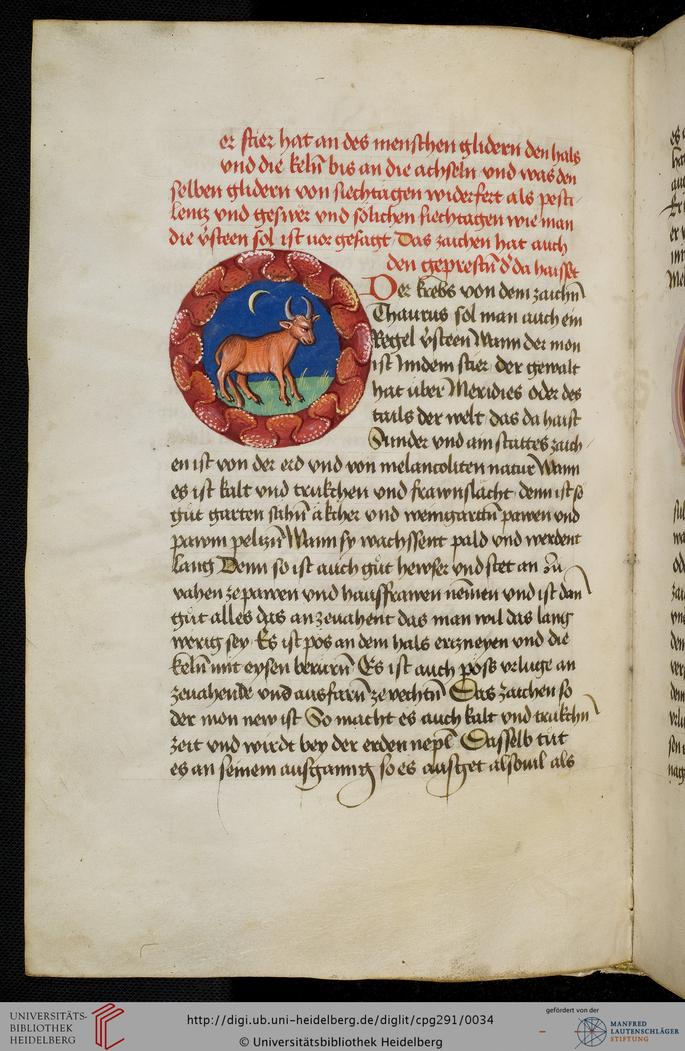 er stier hat an des menschen glidern den hals
vnd die keln bis an die achseln vnd was den
selben glidern von siechtagen widerfert als pesti
lentz vnd geswer vnd sölichen siechtagen wie man
die v̈steen sol ist uor gesagt Das zaichen hat auch
den geprestn̄ d' da haisset
Der krebs von dem zaichn̄
Thaurus sol man auch ein
Regel v̈steen Wann der mon
ist Inndem stier der gewalt
hat über Meridies oder des
tails der welt das da haist
Sunder vnd am stattes zaich
en ist von der erd vnd von melancoliten natur Wann
es ist kalt vnd trukchen vnd frawnslacht denn ist so
gůt garten sahn̄ äkcher vnd weingartn̄ pawen vnd
pawm pelizn̄ Wann sy wachssent pald vnd werdent
lang Denn so ist auch gůt hewser vnd stet an zů
vahen ze pawen vnd haussfrawen nemen vnd ist dan
gůt alles das an zeuahent das man wil das lang
werig sey Es ist pos an dem hals ertzneyen vnd die
keln̄ mit eysen berurn̄ Es ist auch poss vrluge an
zeuahende vnd ausfarn̄ ze vechtn̄ Das zaichen so
der mon new ist So macht es auch kalt vnd trukchn̄
zeit vnd wirdt bey der erden nepl̄ Dasselb tůt
es an seinem aufganng so es aufget alsouil als
UNIVERSITÄTS-
BIBLIOTHEK
HEIDELBERG
http://digi.ub.uni-heidelberg.de/diglit/cpg291/0034
© Universitätsbibliothek Heidelberg
gefördert von der
MANFRED
LAUTENSCHLÄGER
STIFTUNG